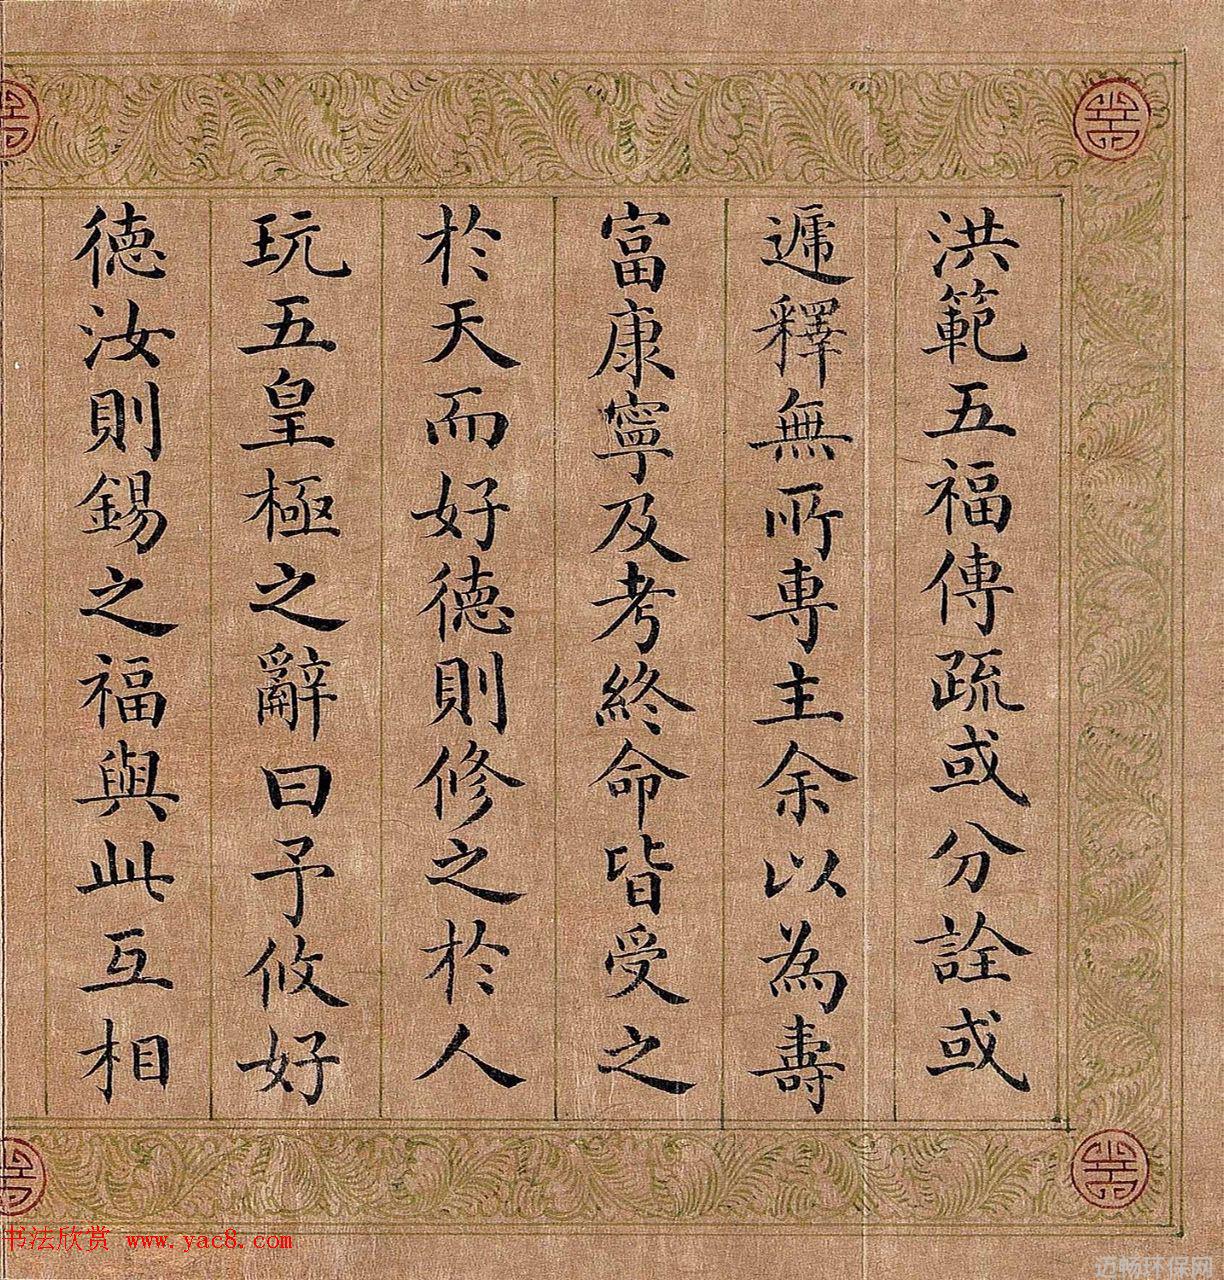 洪範五福傳疏或分詮或
遞釋無所專主余以為壽
富康寧及考終命皆受之
於天而好德則修之於人
玩五皇極之辭曰予攸好
德汝則錫之福與此互相
书法欣赏 www.yac8.com
迈畅环保网